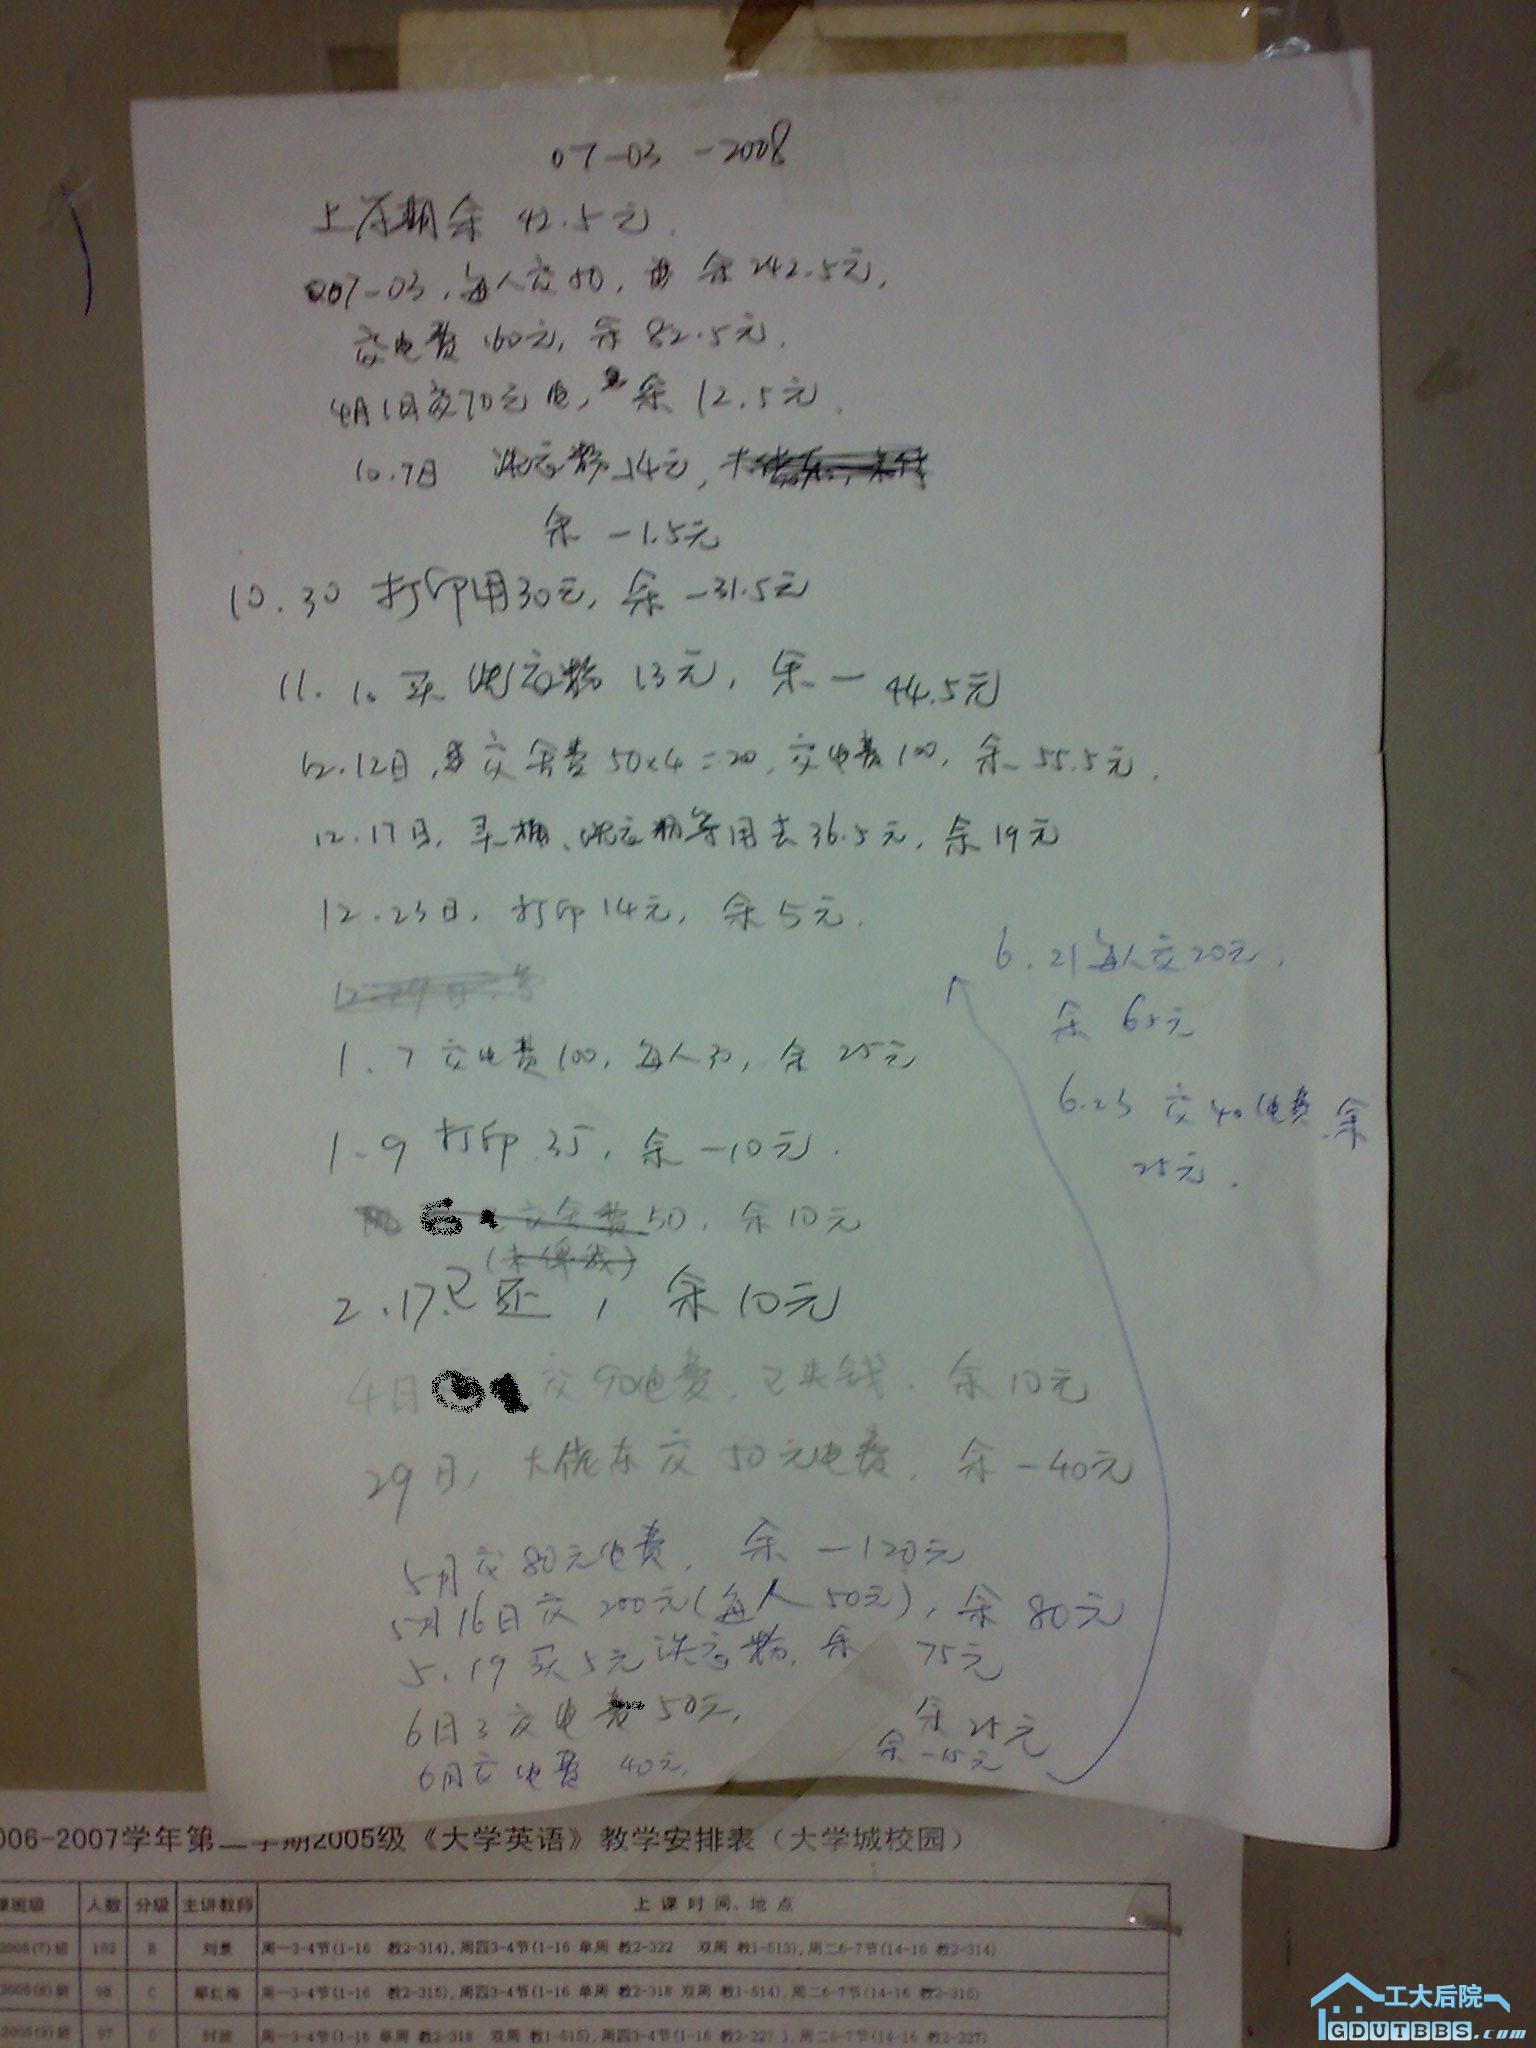 07-03 -2008
上学期余 42.5元.
07-03, 每人交50, 余242.5元,
交电费 160元, 余 82.5元.
4月1日交70元电, 余 12.5元.
10.7日 洗衣粉14元,
余 -1.5元
10.30 打印用30元, 余 -31.5元
11.10 买洗衣粉 13元, 余 -44.5元
12.12日, 交舍费 50×4=200, 交电费100, 余 55.5元.
12.17日, 买桶、洗衣粉等用去36.5元, 余19元
12.23日, 打印14元, 余5元.
1.7 交电费100, 每人30, 余 25元
1.9 打印 35, 余 -10元.
交舍费50, 余10元
2.17已还, 余10元
4日 交90电费, 余10元
29日, 大佬东交 50元电费, 余 -40元
5月交80元电费, 余 -120元
5月16日交 200元(每人 50元), 余 80元
5.19 买5元洗衣粉, 余 75元
6日3交电费 50元, 余 25元
6月交电费 40元, 余 -15元
6.21每人交20元,
余 65元
6.23 交40电费, 余
25元.
006-2007学年第二学期2005级《大学英语》教学安排表（大学城校园）
班级 人数 分级 主讲教师 上 课 时 间、地 点
2005(7)班 102 B 刘景 周一3-4节(1-16 教2-314),周四3-4节(1-16 单周 教2-322 双周 教1-513),周二6-7节(14-16 教2-314)
2005(8)班 98 C 周一3-4节(1-16 教2-315),周四3-4节(1-16 单周 教2-318 双周 教1-514),周二6-7节(14-16 教2-315)
2005(9)班 97 周一3-4节(1-16 单周 教2-318 双周 教1-515),周四3-4节(1-16 教2-227),周二6-7节(14-16 教2-227)
工大后院
GDUTBBS.com